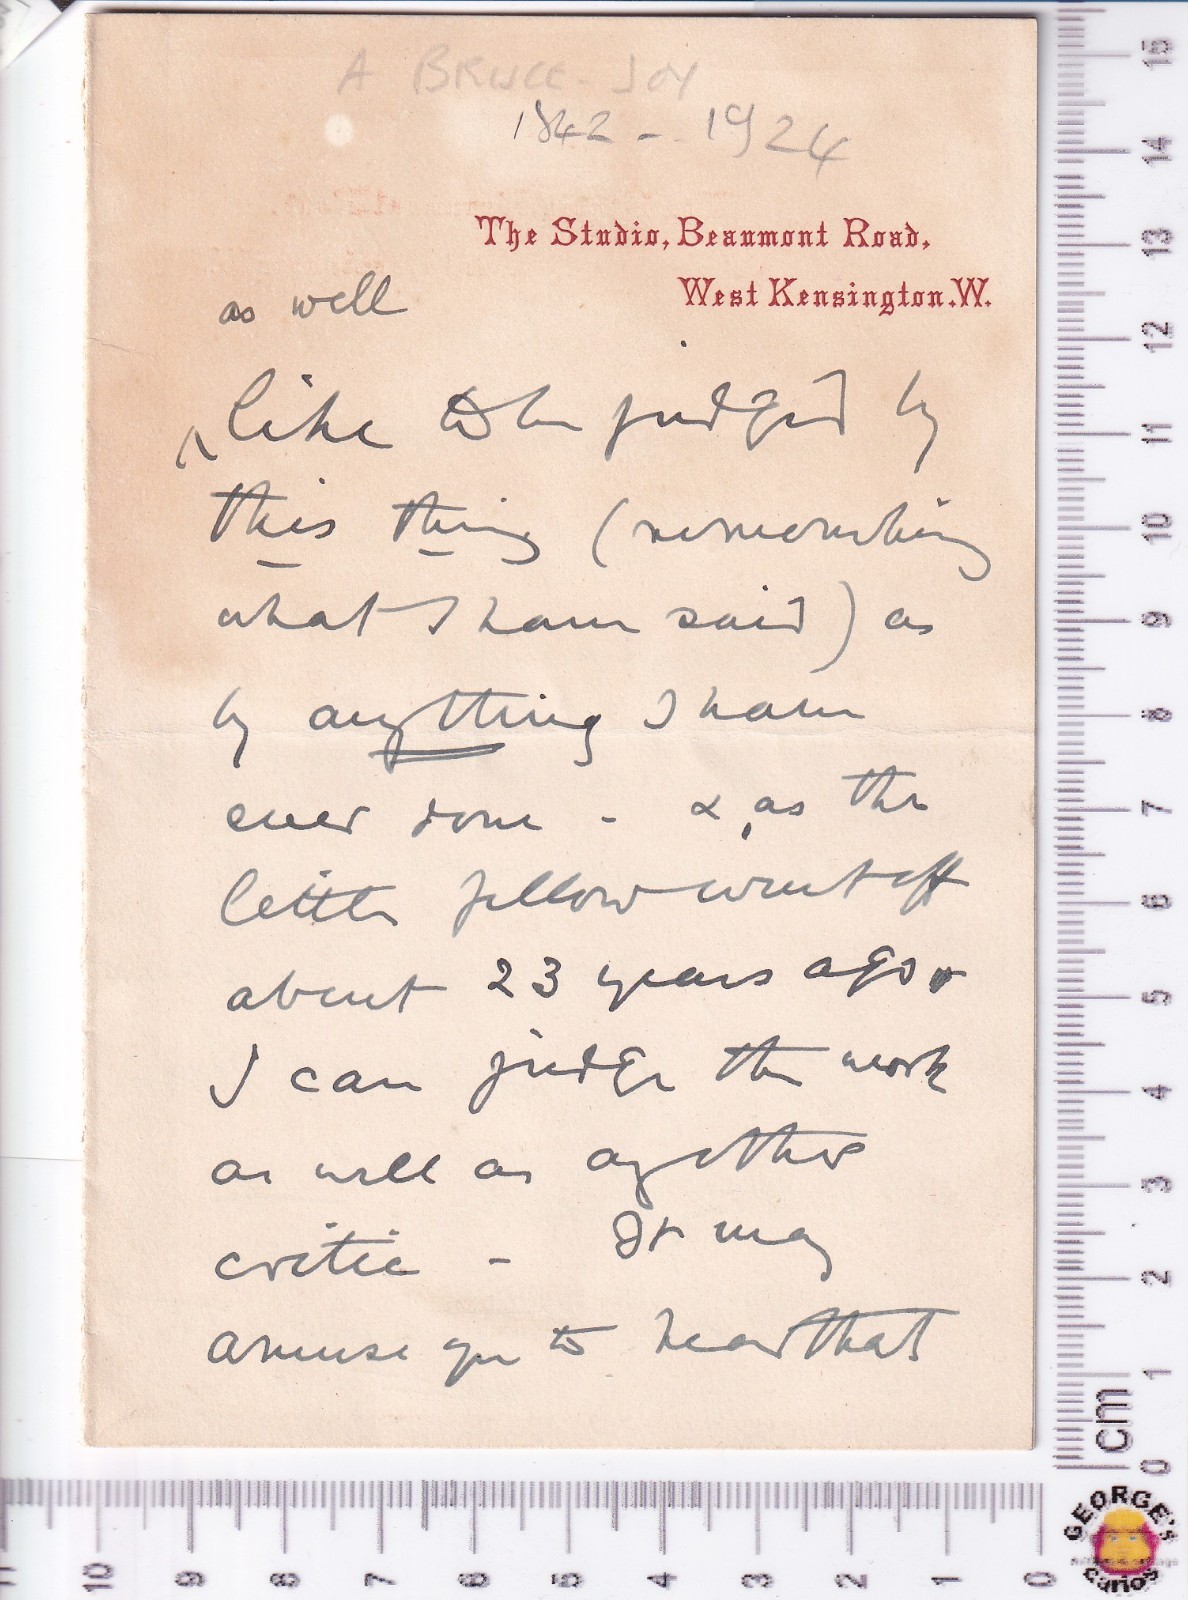 A BRUCE-JOY
1842 - 1924
The Studio, Beaumont Road,
West Kensington. W.
as well
^ like to be judged by
this thing (remembering
what I have said) as
by anything I have
ever done - & , as the
little fellow went off
about 23 years ago,
I can judge the work
as well as any other
critic - It may
amuse you to hear that
15
14
13
12
11
10
9
8
7
6
5
4
3
2
1
0
cm
11 10 9 8 7 6 5 4 3 2 1 0
GEORGE's
Curios